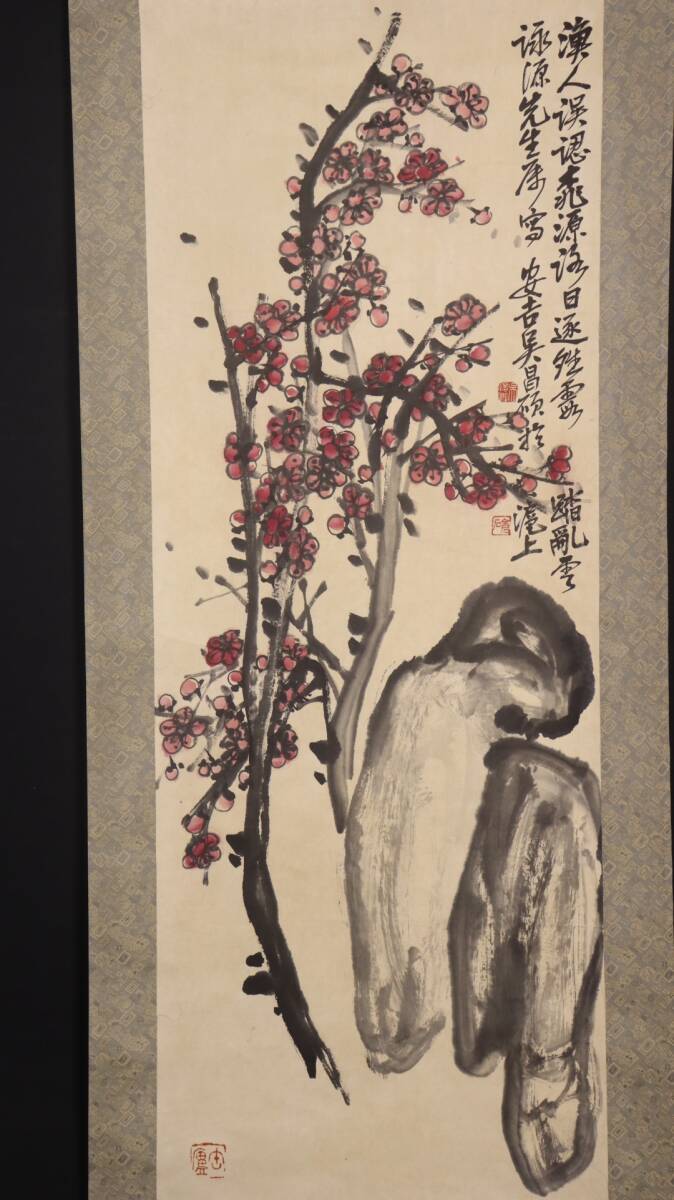 漁人誤認桃源路日逐殘霞踏亂雲
詠源先生屬寫安吉吳昌碩於滬上